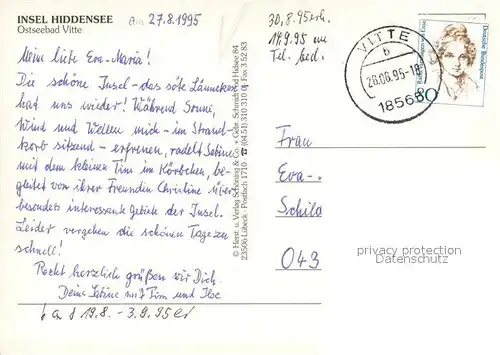 INSEL HIDDENSEE
Ostseebad Vitte
aus 27.8.1995
Meine liebe Eva-Maria!
Die schöne Insel - das söte Länneken
hat uns wieder! Während Sonne,
Wind und Wellen mich - im Strand-
korb sitzend - erfreuen, radelt Sabine
mit dem kleinen Tim im Körbchen, be-
gleitet von ihrer Freundin Christine über
besonders interessante Gebiete der Insel.
Leider vergehen die schönen Tage zu
schnell!
Recht herzlich grüßen wir Dich
Deine Sabine mit Tim und Ilse
19.8. - 3.9.95
© Horst u. Verlag Schöning & Co. + Gebr. Schmidt und Holwe 84
23506 Lübeck · Postfach 1710 · ☎ (04 51) 310 310 · Fax 3 52 83
30.8.95 erh.
17.9.95
Tel. bed.
VITTE
b
28.08.95-18
18565
Deutsche Bundespost
80
Frau
Eva-
Schilo
043
privacy protection
Datenschutz